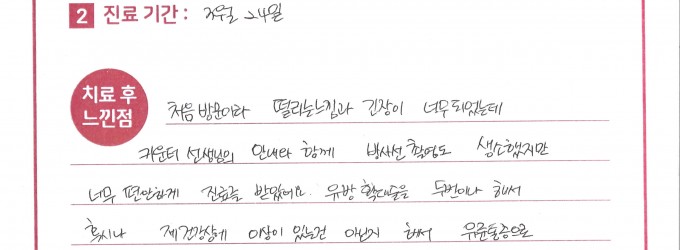 2 진료 기간 : 3월 24일
치료 후
느낀점
처음 방문이라 떨리는느낌과 긴장이 너무되었는데
카운터 선생님의 안내와 함께 방사선 촬영도 생소했지만
너무 편안하게 진료를 받았어요. 유방 확대술을 두번이나 해서
혹시나 제건강상에 이상이 있는건 아닌지 해서 유륜통증으로